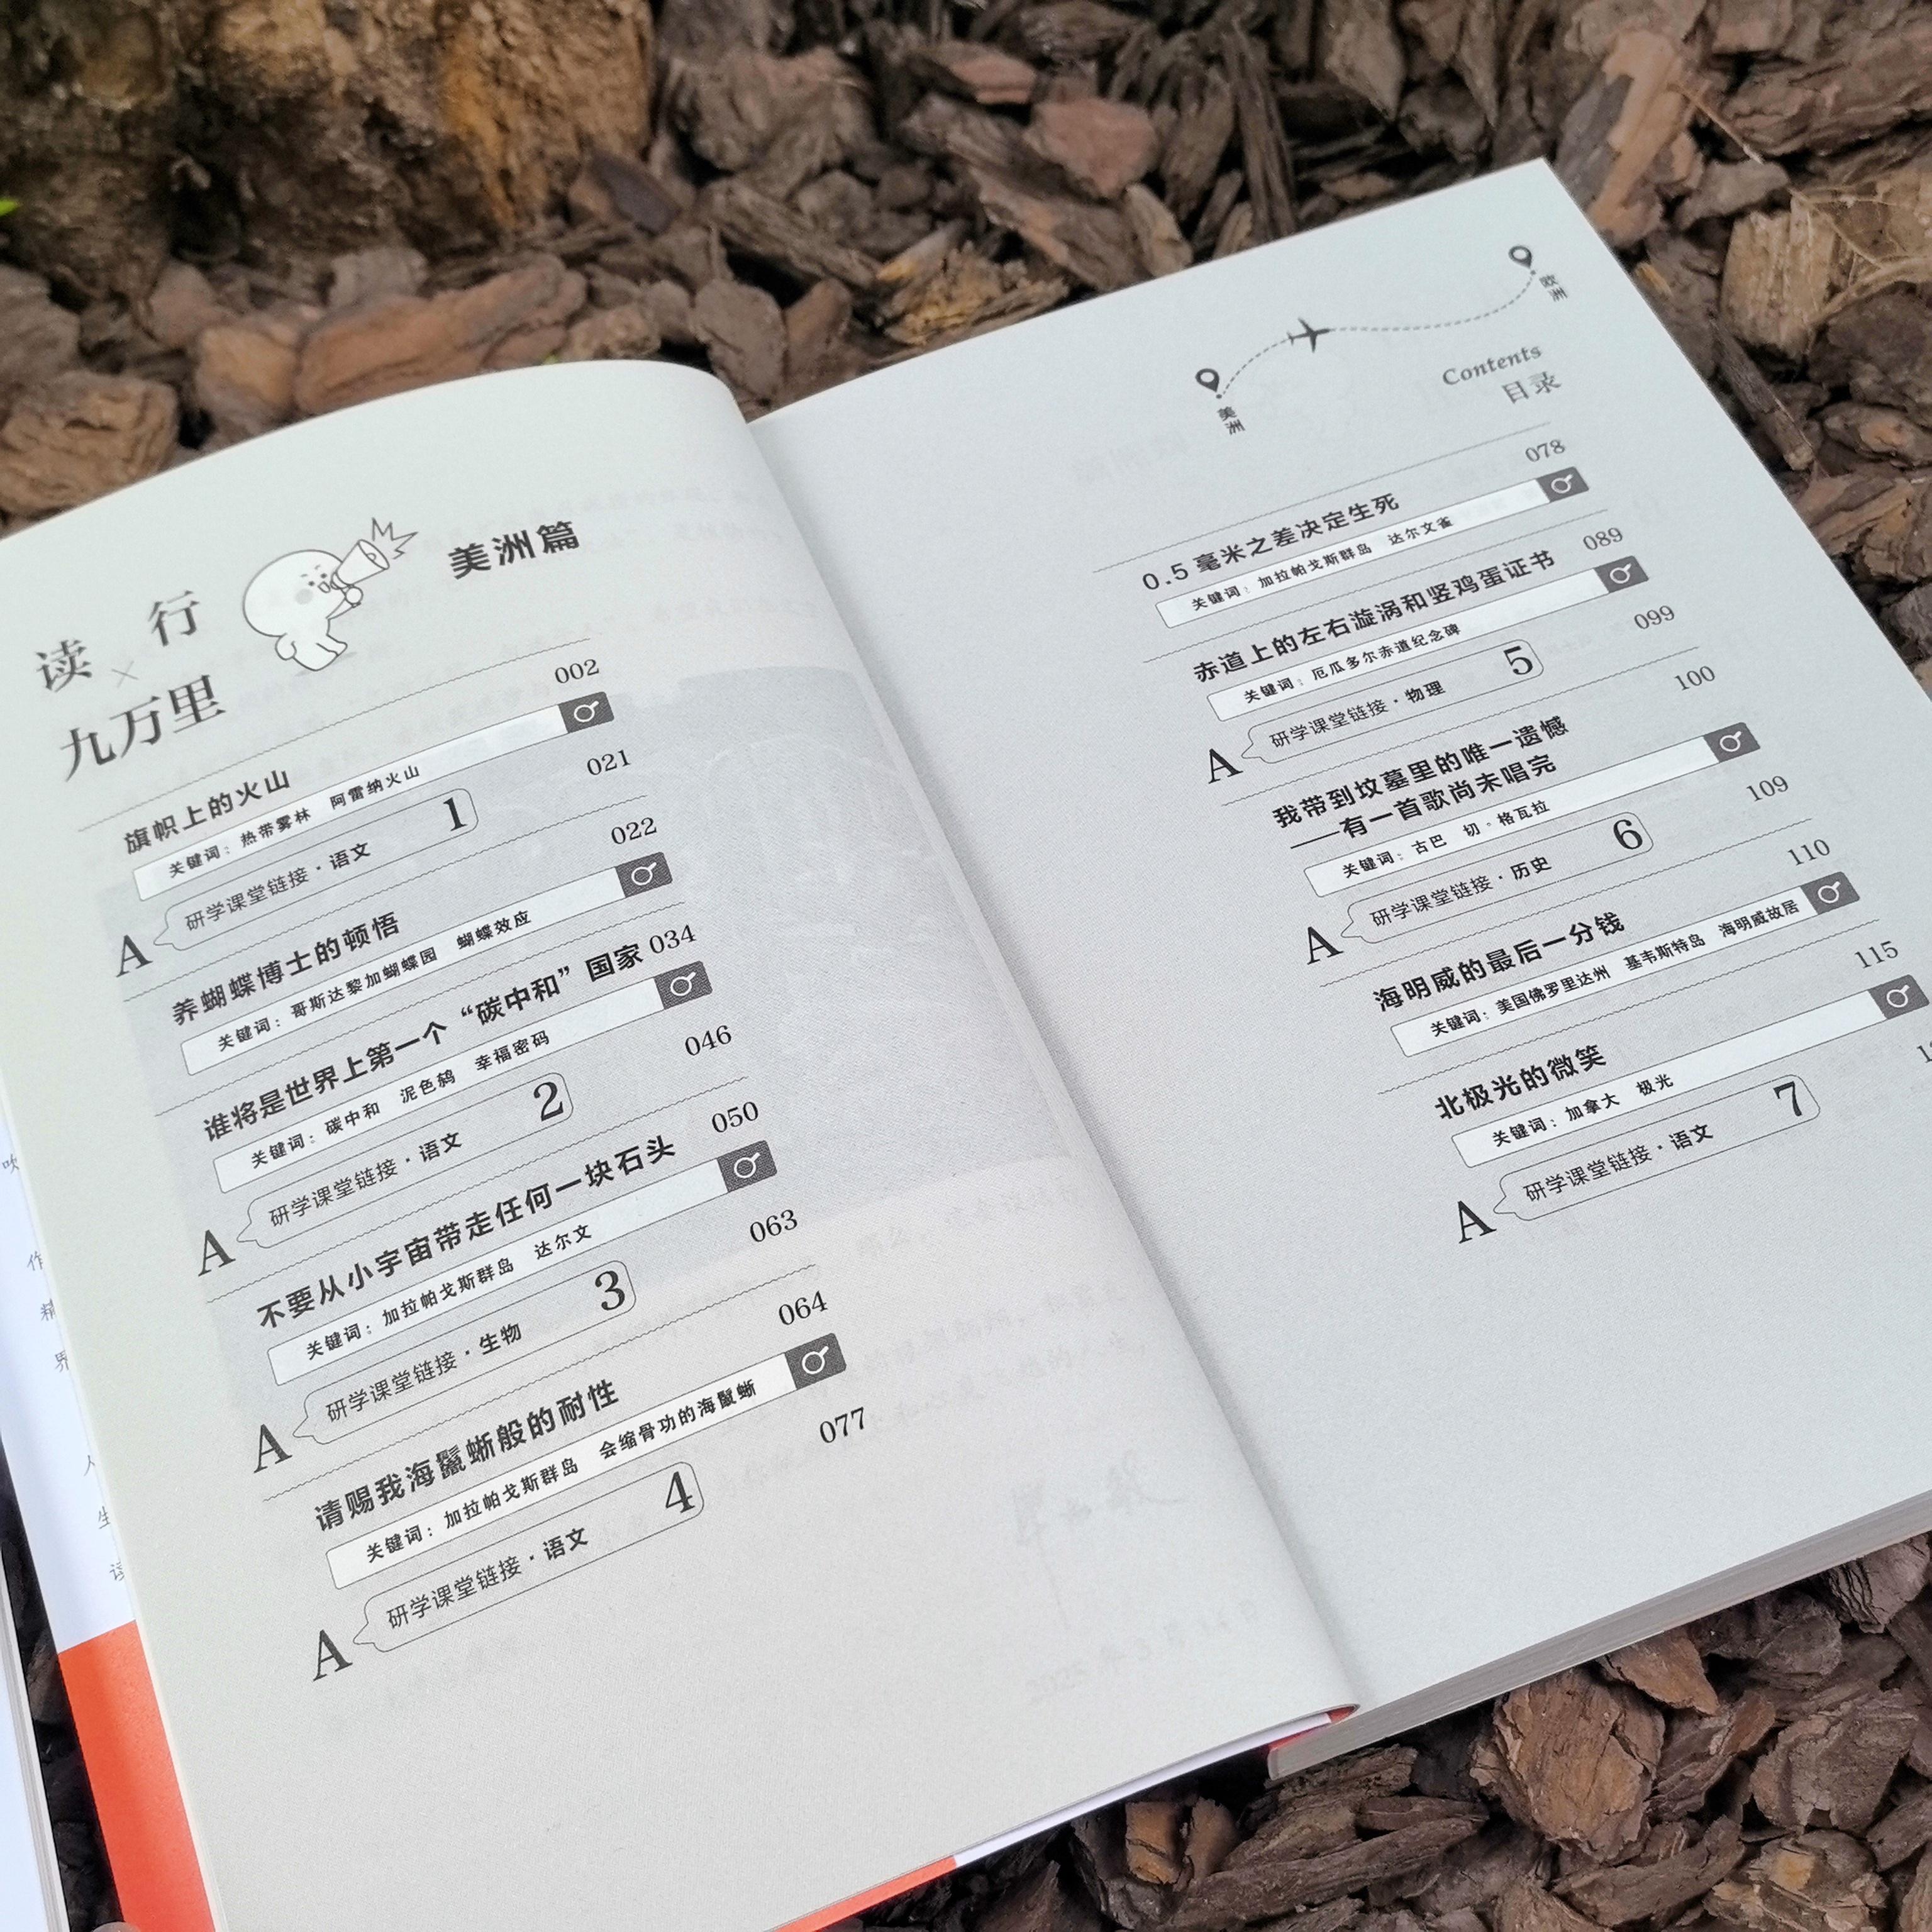 读×行
九万里
美洲篇
旗帜上的火山 002
关键词：热带雾林 阿雷纳火山
A 研学课堂链接·语文 1 021
养蝴蝶博士的顿悟 022
关键词：哥斯达黎加蝴蝶园 蝴蝶效应
谁将是世界上第一个“碳中和”国家 034
关键词：碳中和 泥色鸫 幸福密码
A 研学课堂链接·语文 2 046
不要从小宇宙带走任何一块石头 050
关键词：加拉帕戈斯群岛 达尔文
A 研学课堂链接·生物 3 063
请赐我海鬣蜥般的耐性 064
关键词：加拉帕戈斯群岛 会缩骨功的海鬣蜥
A 研学课堂链接·语文 4 077
美洲
欧洲
Contents
目录
0.5毫米之差决定生死 078
关键词：加拉帕戈斯群岛 达尔文雀
赤道上的左右漩涡和竖鸡蛋证书 089
关键词：厄瓜多尔赤道纪念碑
A 研学课堂链接·物理 5 099
我带到坟墓里的唯一遗憾 100
——有一首歌尚未唱完
关键词：古巴 切·格瓦拉
A 研学课堂链接·历史 6 109
海明威的最后一分钱 110
关键词：美国佛罗里达州 基韦斯特岛 海明威故居
北极光的微笑 115
关键词：加拿大 极光
A 研学课堂链接·语文 7